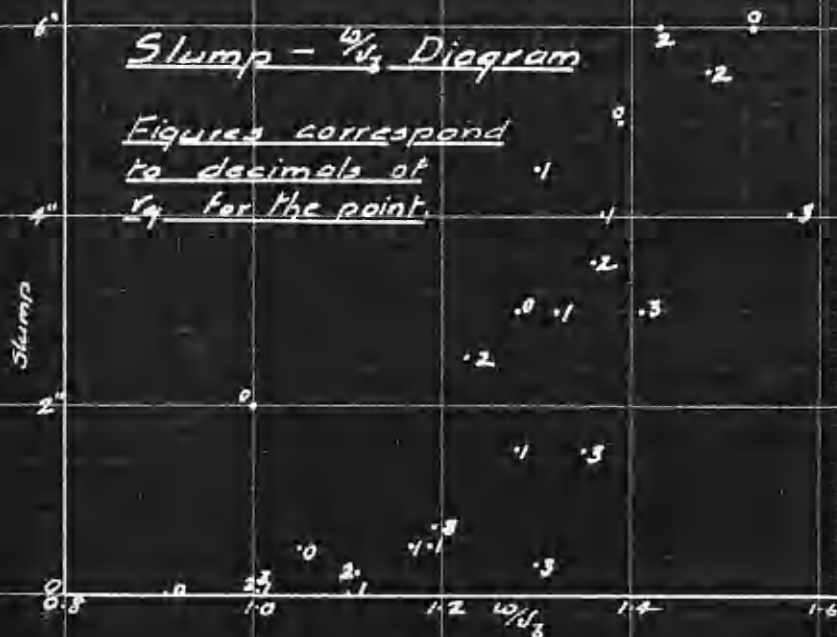 6"
Slump - w/√3 Diagram
Figures correspond
to decimals of
for the point.
4"
Slump
2"
0
0.8
1.0
1.2
1.4
1.6
0
2
.2
0
.1
.1
.3
.2
.0
.1
.3
.2
0
.1
.3
.3
.1
.1
.0
2.
.3
.0
.1